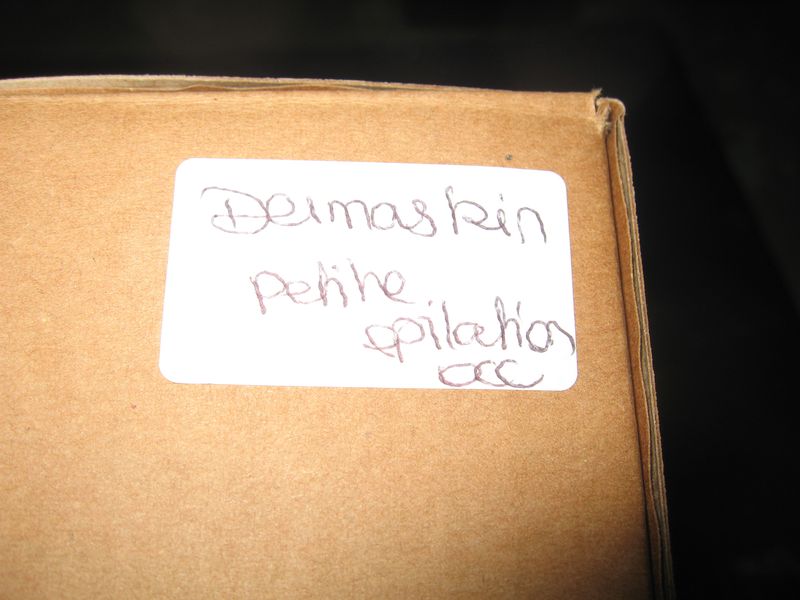 Dermaskin
petite
epilation
occ